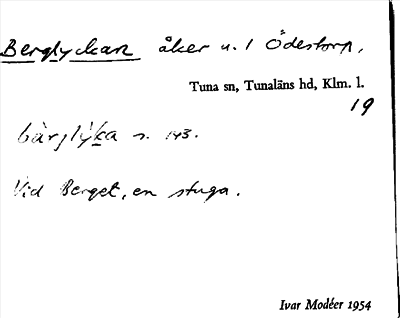 Berglyckan åker u. 1 Ödestorp,
Tuna sn, Tunaläns hd, Klm. l.
19
bärjlỳka s. 143.
Vid Berget, en stuga.
Ivar Modéer 1954